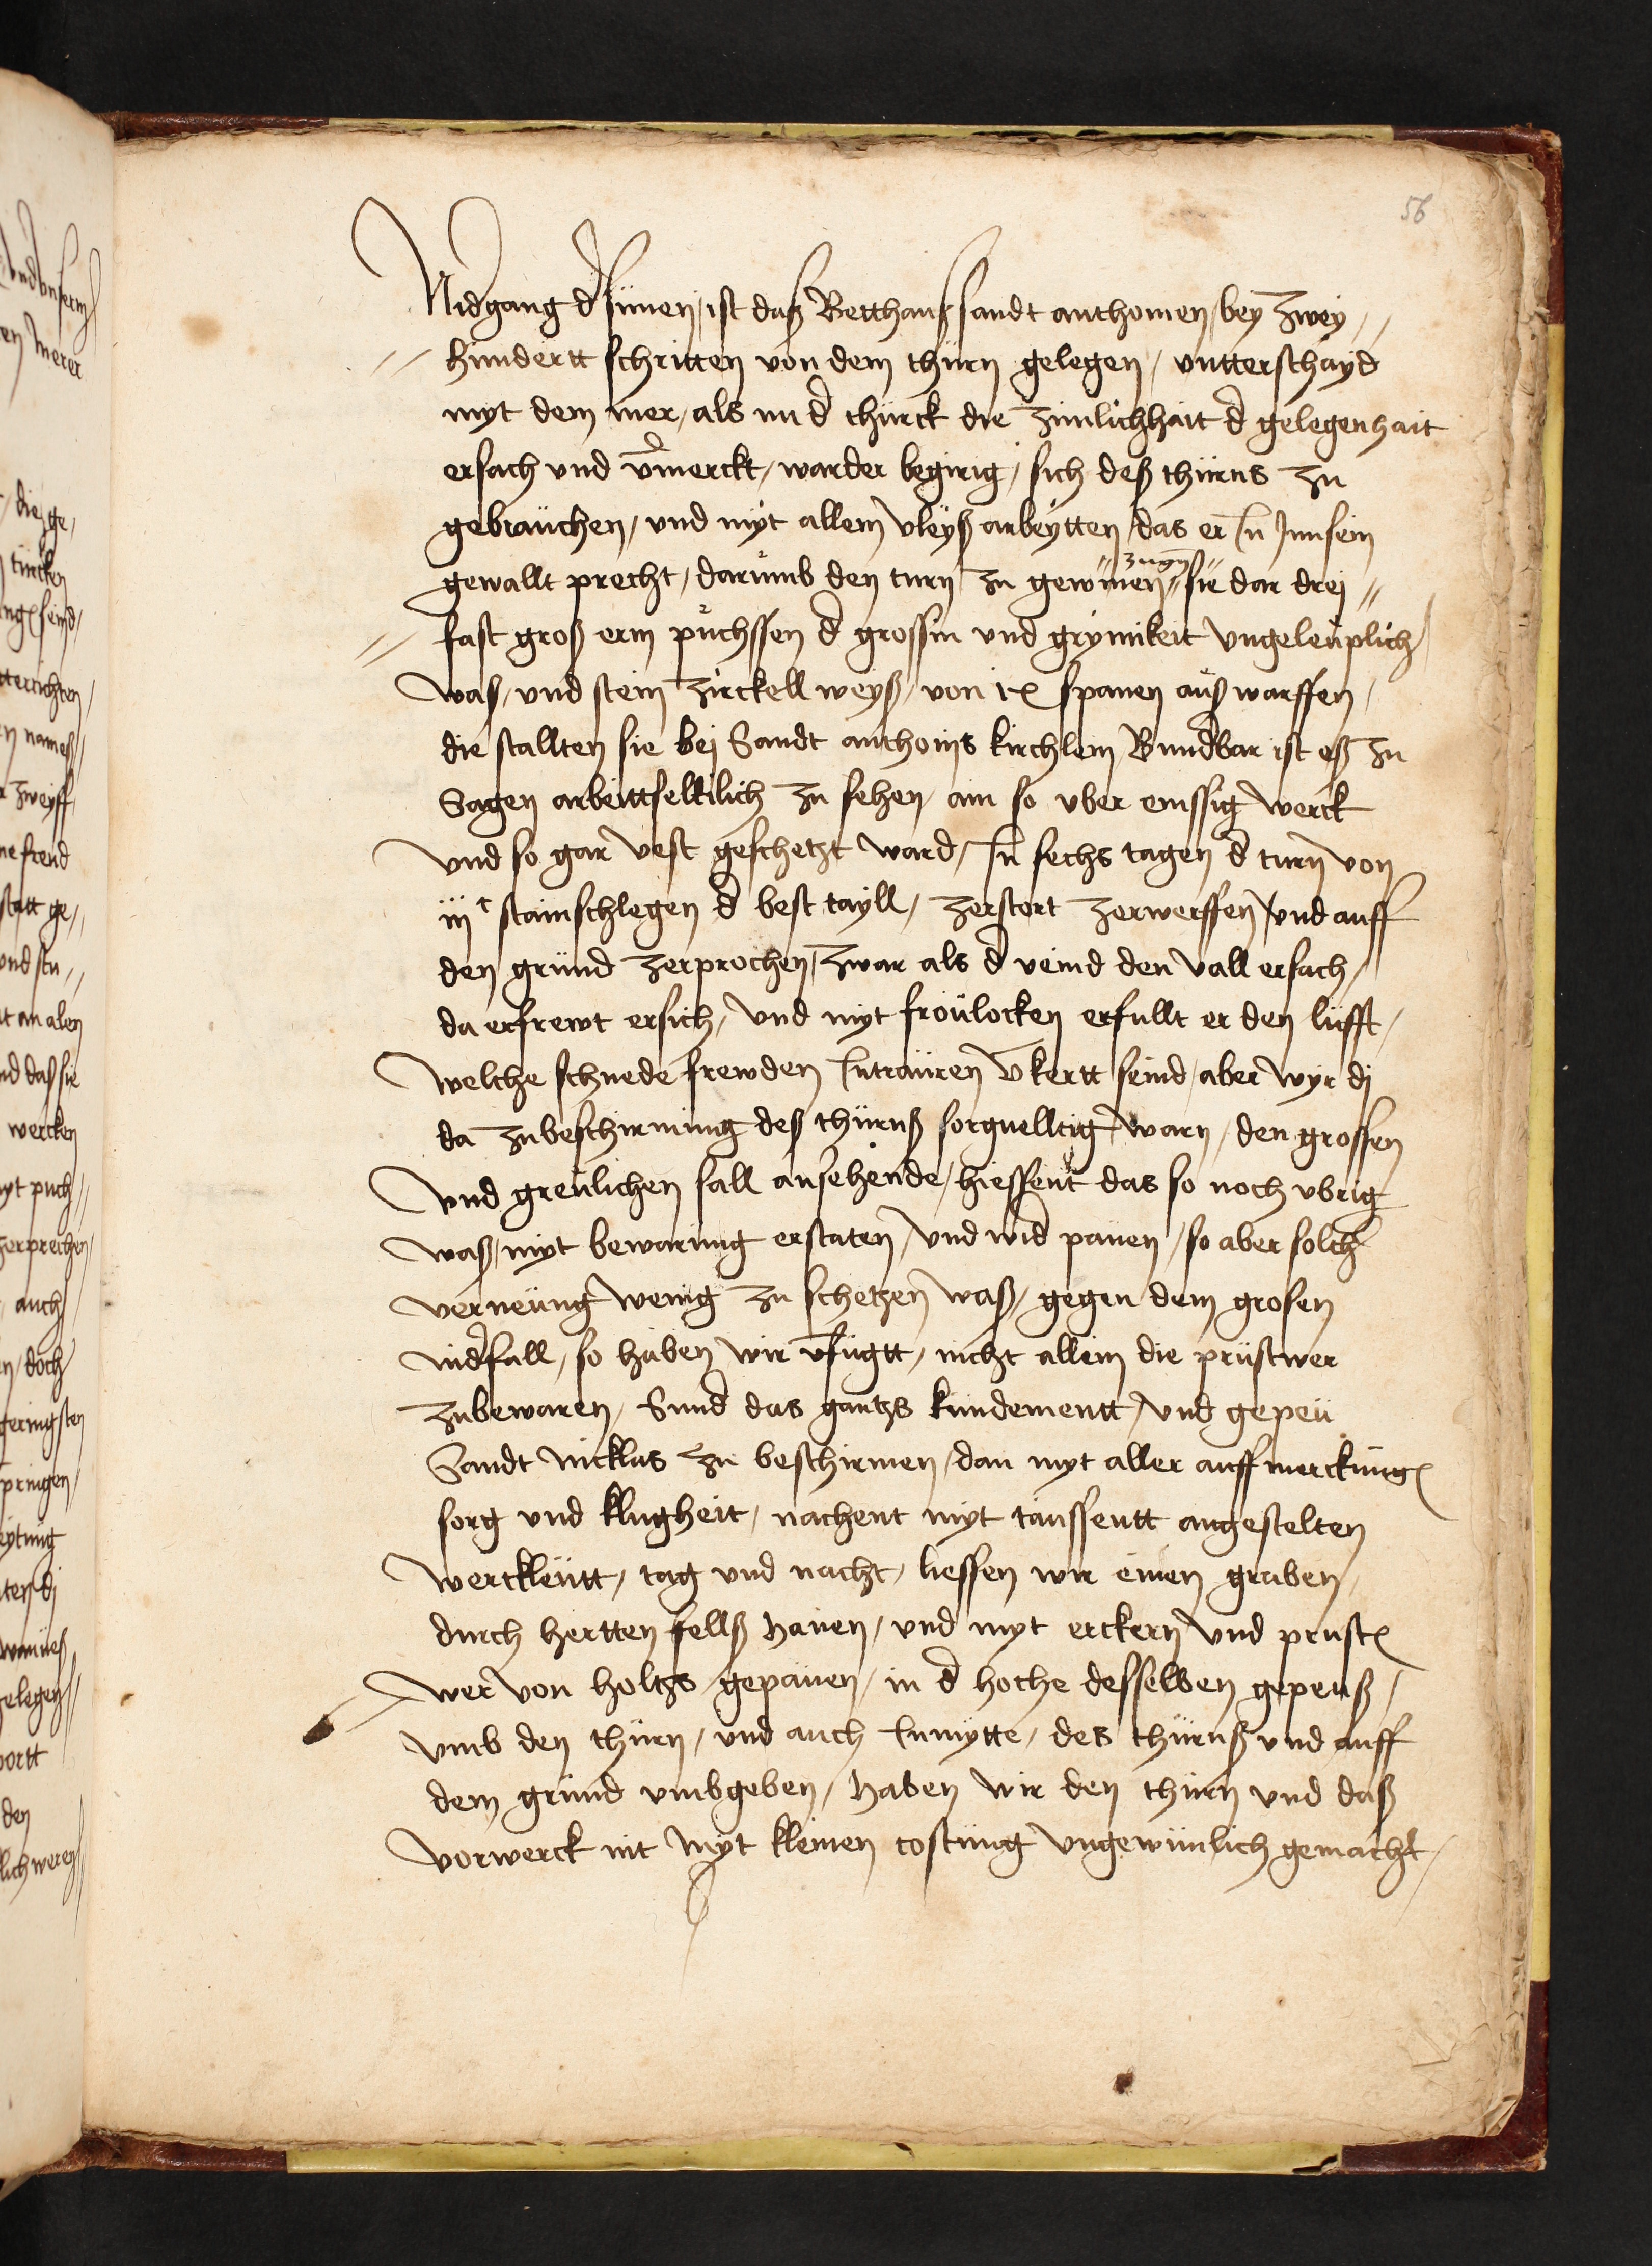 56
Nidgang d sünen / ist daß Betthauß sandt anthonien / bey zwey //
// hundertt schritten von dem thürn gelegen / vntterschayd
myt dem mer / als nu d thurck die zimlichhait d gelegenhait
ersach vnd vmerckt / warder begirig / sich deß thürns zu
gebrauchen / vnd myt allem vleyß arbeytten / das er in Jnn sein
gewallt precht / darumb den turn zu gewinen // zugn // sie dar drej //
// fast groß erin püchssen d grossin vnd grymikeit vngeleuplich /
waß / vnd stein zirckell weyß / von ix spanen auß warffen /
die stallten sie bej Sandt anthonis kirchlein Bundbar ist eß zu
Sagen arbeittselklich zu sehen / ain so vber emssig werck
vnd so gar vest geschetzt ward / In sechs tagen d turn von
iij c stainschlegen d best tayll / zerstort zerworffen / vnd auff
den gründ zerprochen / zwar als d veind den vall ersach /
da erfrewt ersich / vnd myt frolocken erfullt er den lüfft /
welche schnede frewden In trauren vkertt seind / aber wyr dj
da zubeschirmung deß thürnß sorguelltig warn / den grossen
vnd greulichen fall ansehende / hiessent das so noch vbrig
waß / myt bewarung erstaten / vnd wid pauen / so aber solch
verneüng wenig zu schetzen waß / gegen dem grosen
nidfall / so haben wir vfügtt / nicht allein die prüstwer
zubewaren / Sund das gantz fundementt / vnd gepeu
Sandt nicklas zu beschirmen / dan myt aller auffmerckung
sorg vnd klugheit / nachent myt taussentt angestelten
werckleutt / tag vnd nacht / liessen wir einen graben /
durch hertten felß hauen / vnd myt erckern vnd prust
wer von holtz gepauen / in d hoche desselben gepeuß /
vmb den thurn / vnd auch In mytte / des thürnß vnd auff
dem gründ vmbgeben / haben wir den thurn vnd daß
vorwerck nit myt kleinen costung vngewinlich gemacht /